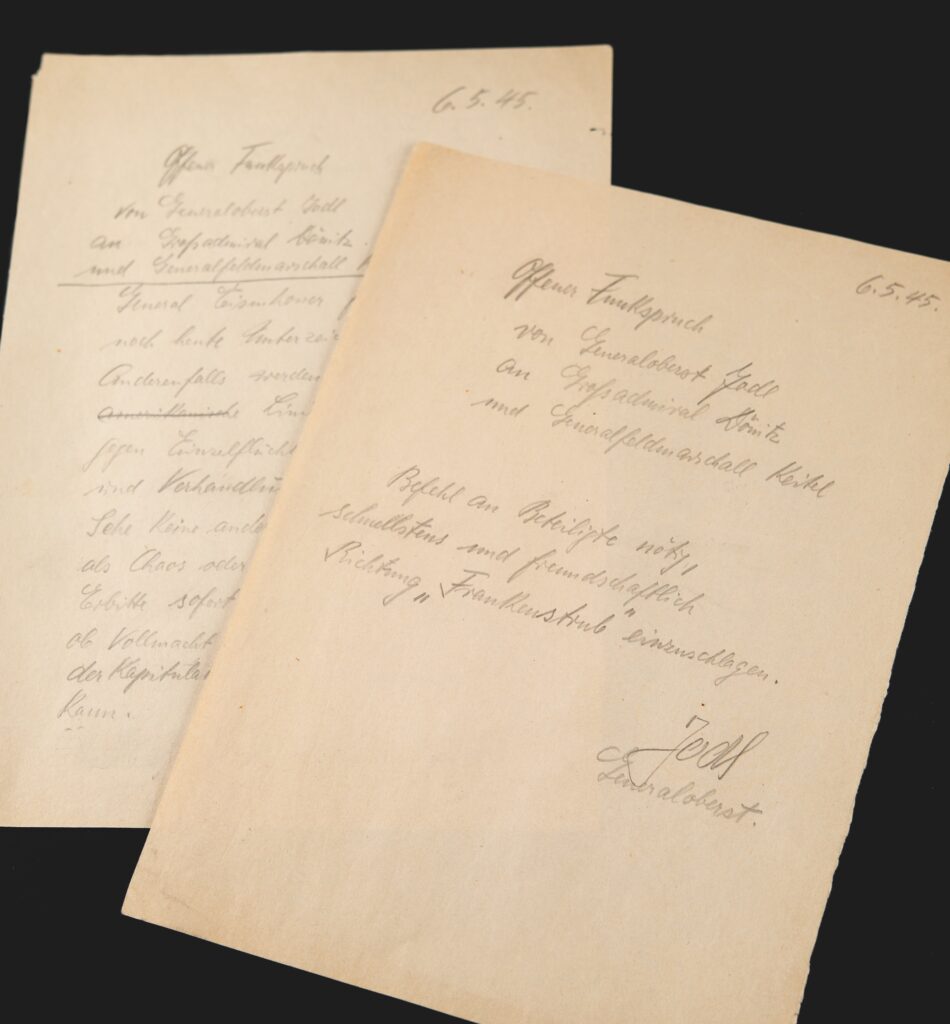 6.5.45.
Offener Funkspruch
von Generaloberst Jodl
an Großadmiral Dönitz.
und Generalfeldmarschall
General Eisenhower
noch heute
Anderenfalls werden
amerikanische
gegen
und
Sehe keine
als Chaos oder
Erbitte sofort
ob Vollmacht
der
kann.
6.5.45.
Offener Funkspruch
von Generaloberst Jodl
an Großadmiral Dönitz
und Generalfeldmarschall Keitel
Befehl an Beteiligte nötig,
schnellstens und freundschaftlich
Richtung „Frankenstrub" einzuschlagen.
Jodl
Generaloberst.